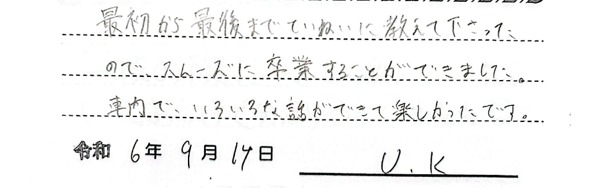 最初から最後までていねいに教えて下さった
ので、スムーズに卒業することができました。
車内で、いろいろな話ができて楽しかったです。
令和 6年 9月 14日 U.K